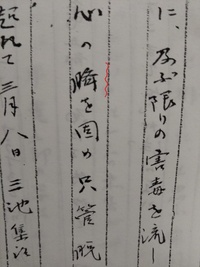 に、及ぶ限りの害毒を流し
心の臍を固め只管既
起れて三月八日、三池集治